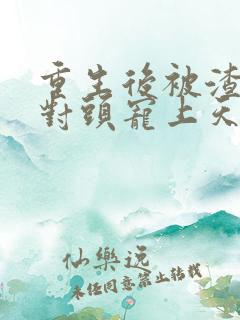 重生後被渣
對頭寵上天
仙樂逅
未經同意禁止轉載